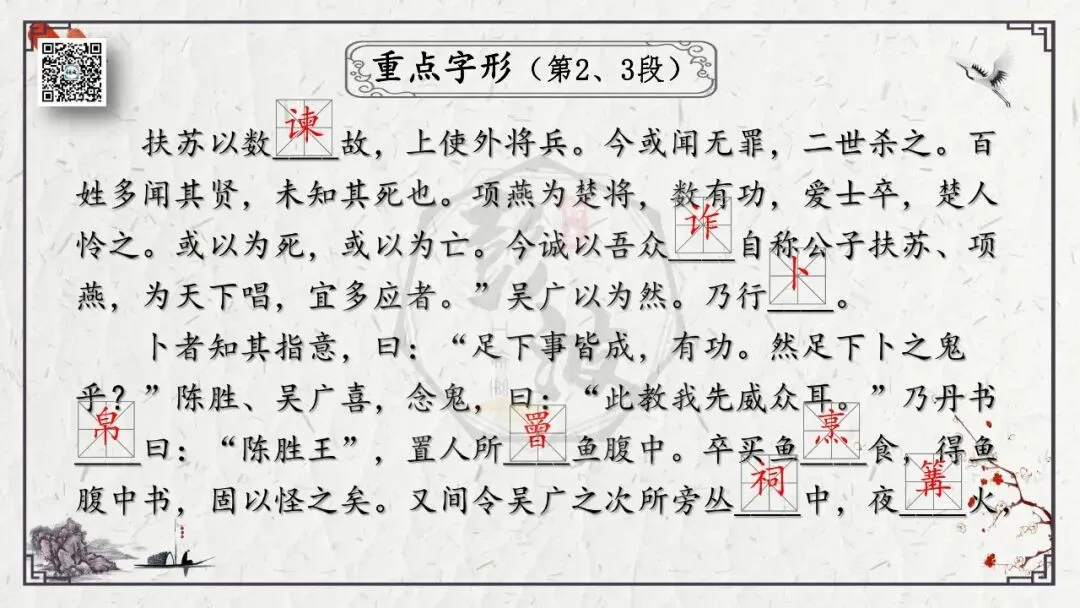 重点字形（第2、3段）
扶苏以数谏故，上使外将兵。今或闻无罪，二世杀之。百
姓多闻其贤，未知其死也。项燕为楚将，数有功，爱士卒，楚人
怜之。或以为死，或以为亡。今诚以吾众诈自称公子扶苏、项
燕，为天下唱，宜多应者。”吴广以为然。乃行卜。
卜者知其指意，曰：“足下事皆成，有功。然足下卜之鬼
乎？”陈胜、吴广喜，念鬼，曰：“此教我先威众耳。”乃丹书
帛曰：“陈胜王”，置人所罾鱼腹中。卒买鱼烹食，得鱼
腹中书，固以怪之矣。又间令吴广之次所旁丛祠中，夜篝火，